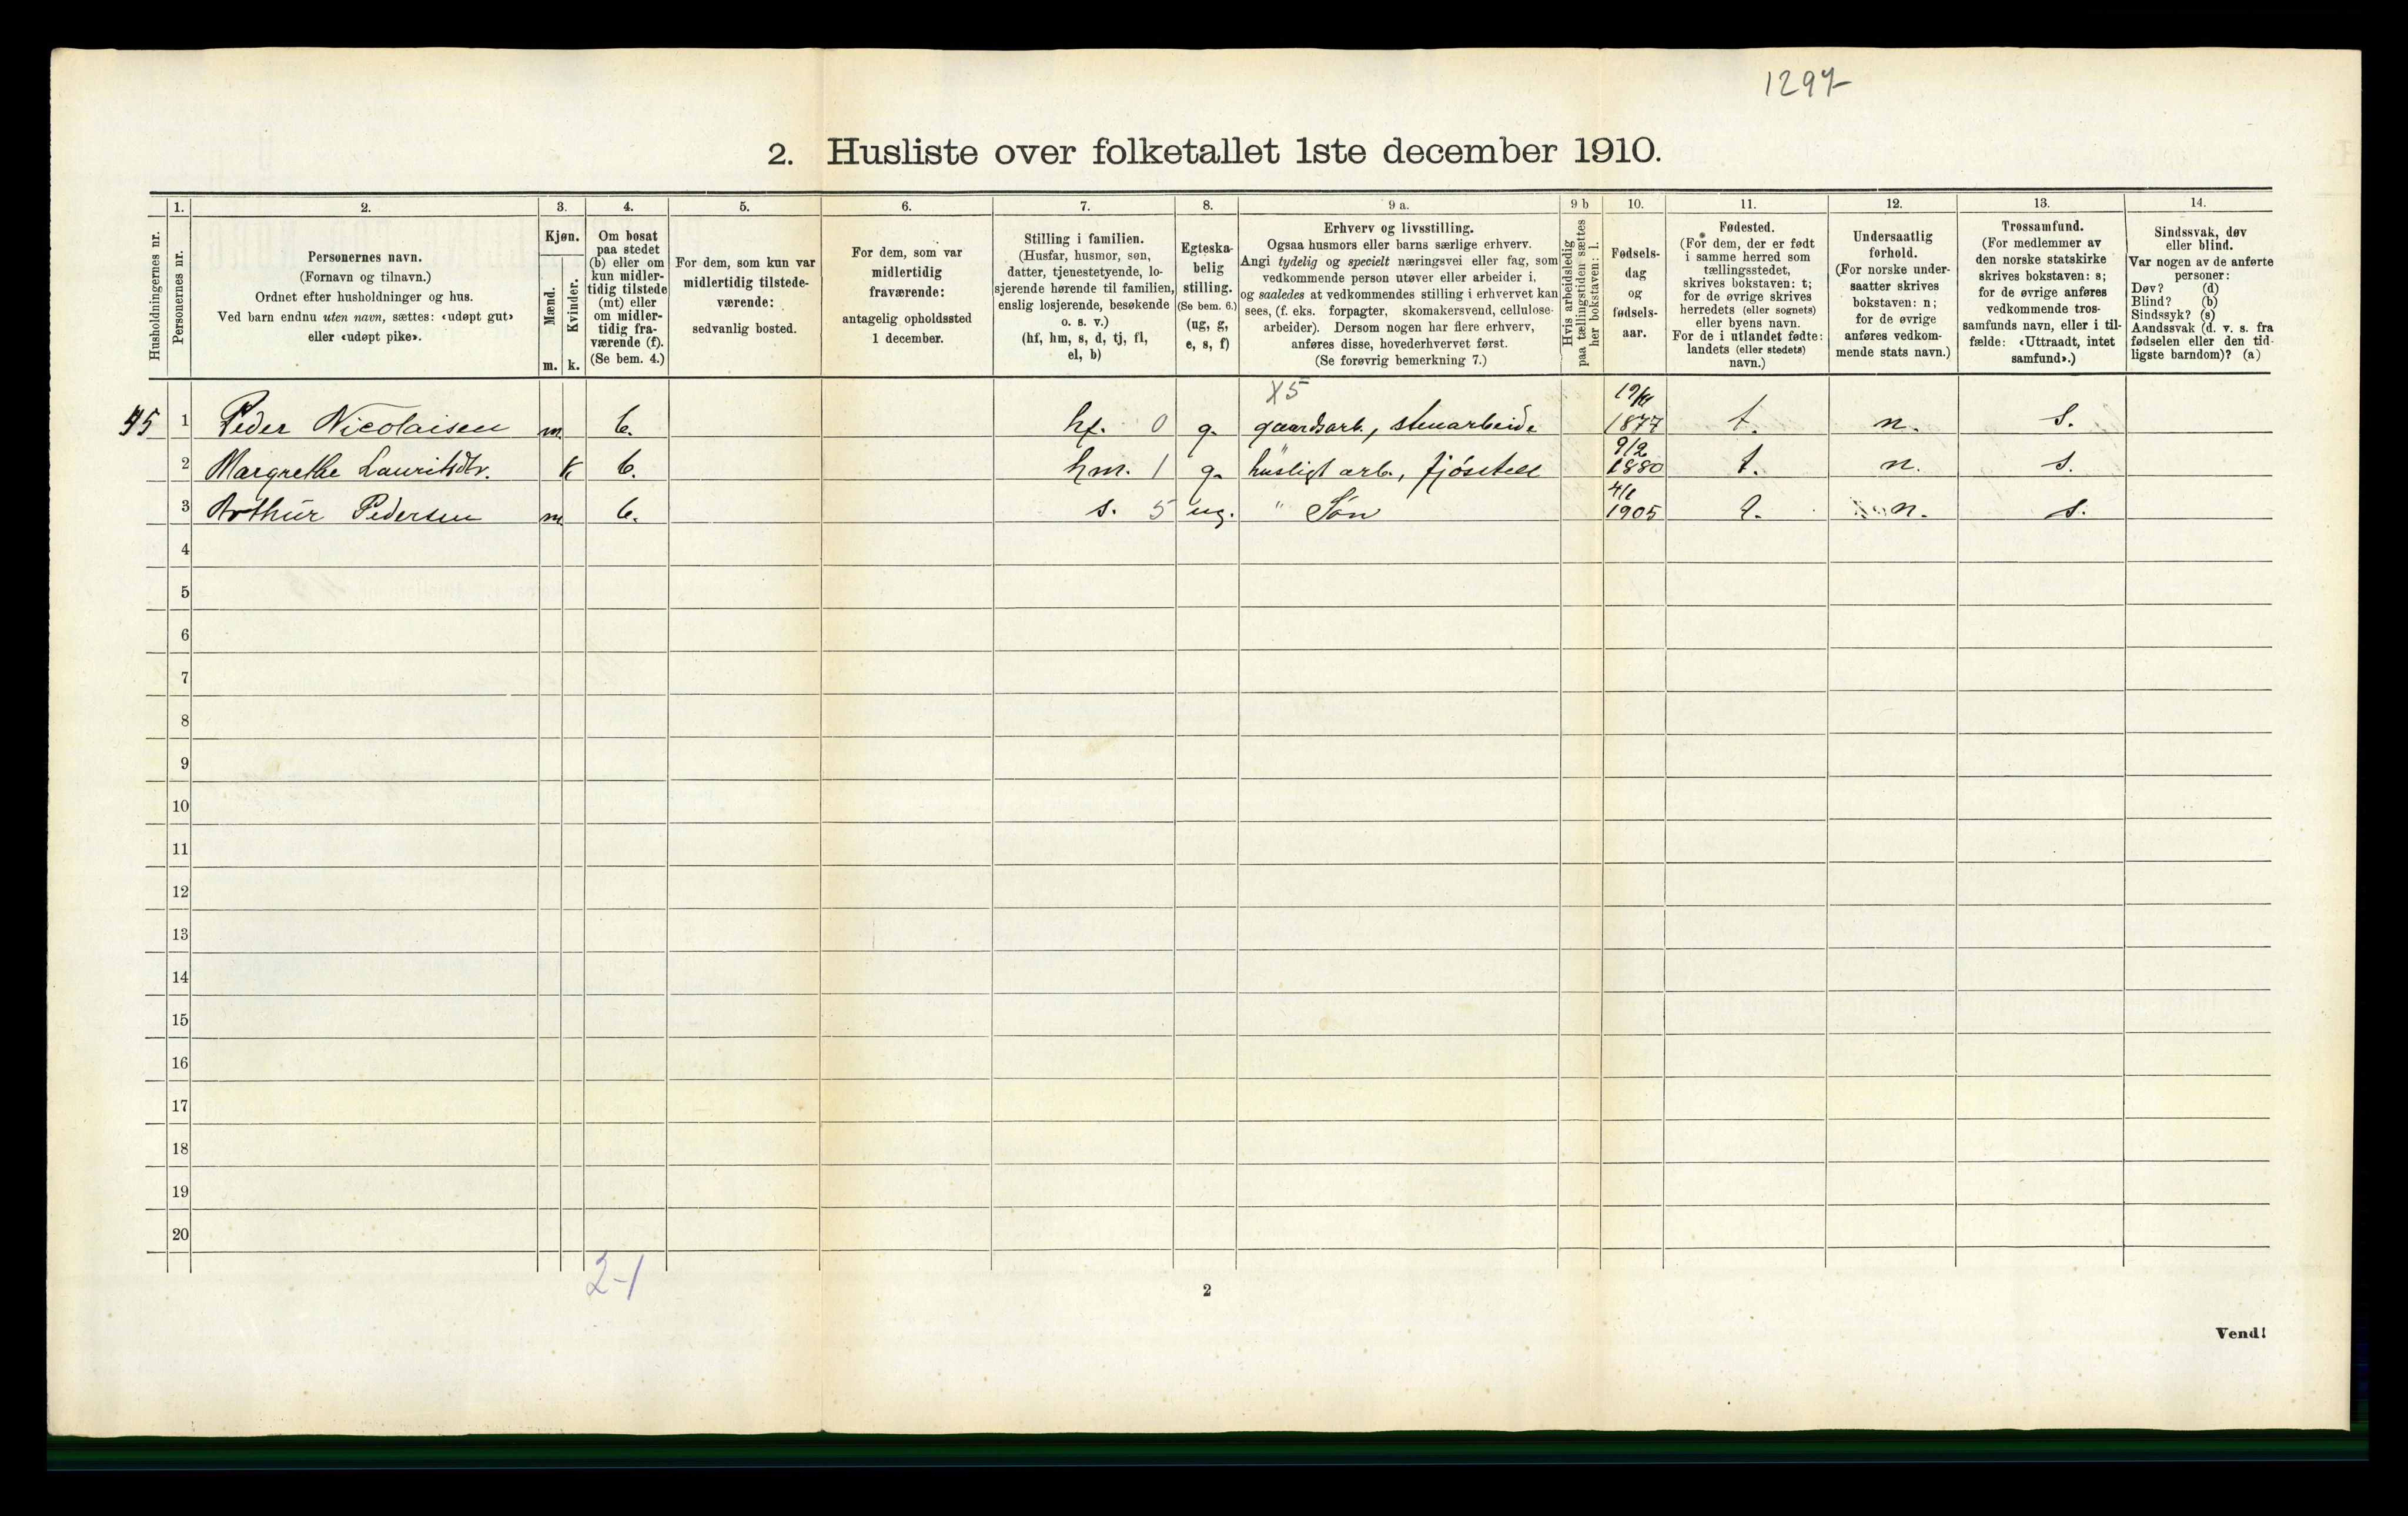 1297
2. Husliste over folketallet 1ste december 1910.
Husholdningernes nr.
1.
Personernes nr.
2.
Personernes navn.
(Fornavn og tilnavn.)
Ordnet efter husholdninger og hus.
Ved barn endnu uten navn, sættes: «udøpt gut»
eller «udøpt pike».
3.
Kjøn.
Mænd.
Kvinder.
m. k.
4.
Om bosat
paa stedet
(b) eller om
kun midler-
tidig tilstede
(mt) eller
om midler-
tidig fra-
værende (f).
(Se bem. 4.)
5.
For dem, som kun var
midlertidig tilstede-
værende:
sedvanlig bosted.
6.
For dem, som var
midlertidig
fraværende:
antagelig opholdssted
1 december.
7.
Stilling i familien.
(Husfar, husmor, søn,
datter, tjenestetyende, lo-
sjerende hørende til familien,
enslig losjerende, besøkende
o. s. v.)
(hf, hm, s, d, tj, fl,
el, b)
8.
Egteska-
belig
stilling.
(Se bem. 6.)
(ug, g,
e, s, f)
9 a.
Erhverv og livsstilling.
Ogsaa husmors eller barns særlige erhverv.
Angi tydelig og specielt næringsvei eller fag, som
vedkommende person utøver eller arbeider i,
og saaledes at vedkommendes stilling i erhvervet kan
sees, (f. eks. forpagter, skomakersvend, cellulose-
arbeider). Dersom nogen har flere erhverv,
anføres disse, hovederhvervet først.
(Se forøvrig bemerkning 7.)
9 b
Hvis arbeidsledig
paa tællingstiden sættes
her bokstaven: l.
10.
Fødsels-
dag
og
fødsels-
aar.
11.
Fødested.
(For dem, der er født
i samme herred som
tællingsstedet,
skrives bokstaven: t;
for de øvrige skrives
herredets (eller sognets)
eller byens navn.
For de i utlandet fødte:
landets (eller stedets)
navn.)
12.
Undersaatlig
forhold.
(For norske under-
saatter skrives
bokstaven: n;
for de øvrige
anføres vedkom-
mende stats navn.)
13.
Trossamfund.
(For medlemmer av
den norske statskirke
skrives bokstaven: s;
for de øvrige anføres
vedkommende tros-
samfunds navn, eller i til-
fælde: «Uttraadt, intet
samfund».)
14.
Sindssvak, døv
eller blind.
Var nogen av de anførte
personer:
Døv? (d)
Blind? (b)
Sindssyk? (s)
Aandssvak (d. v. s. fra
fødselen eller den tid-
ligste barndom)? (a)
X5
1 Peder Nicolaisen m. b. hf. 0 g. gaardsarb., stenarbeide 1877 t. n. s.
9/2
2 Margrethe Lauritsdtr. k b. hm. 1 g. husligt arb., fjøsstell 1880 t. n. s.
3 Arthur Pedersen m b. s. 5 ug. " Søn 1905 n. s.
4
5
6
7
8
9
10
11
12
13
14
15
16
17
18
19
20
2-1
2
Vend!